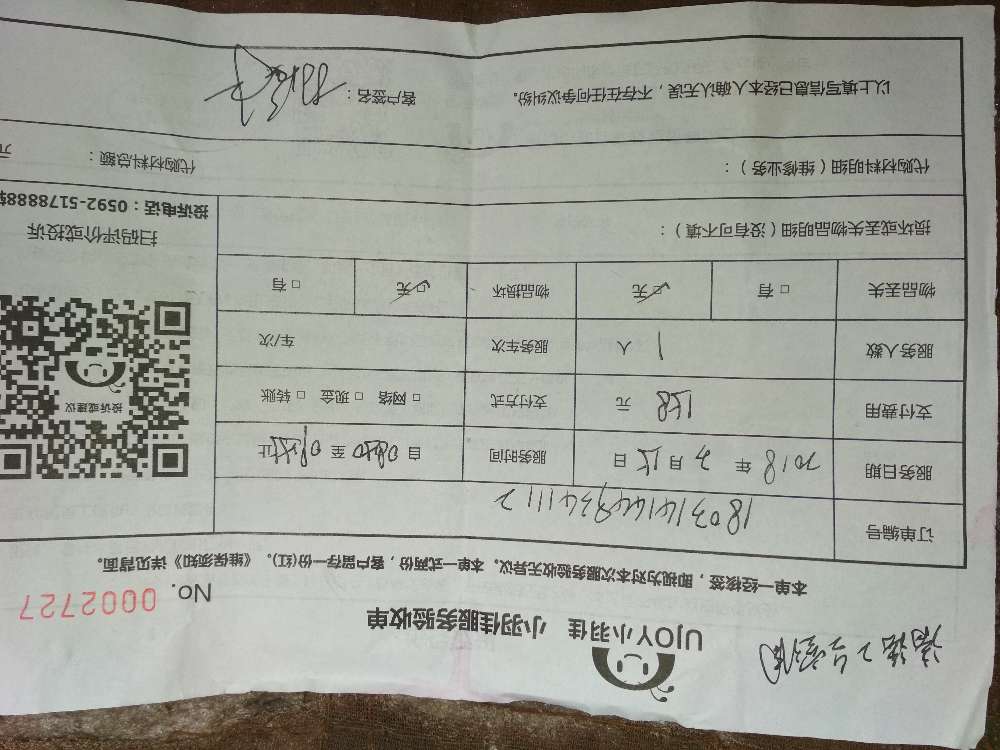 UJOY小羽佳 小羽佳服务验收单
No. 0002727
本单一经核签，即视为对本次服务验收无异议。本单一式两份，客户留存一份(红)。《维保须知》详见背面。
订单编号
服务日期 2018 年 3 月 15 日 服务时间 自 至 止
支付费用 158 元 支付方式 □ 网络 □ 现金 □ 转账
服务人数 1 人 服务车次 车/次
物品丢失 □ 有 □ 无 物品损坏 □ 无 □ 有
投诉或建议
扫码评价或投诉
投诉电话：0592-5178888转
损坏或丢失物品明细（没有可不填）：
代购材料明细（维修业务）： 代购材料总额： 元
以上填写信息已经本人确认无误，不存在任何争议纠纷。 客户签名：